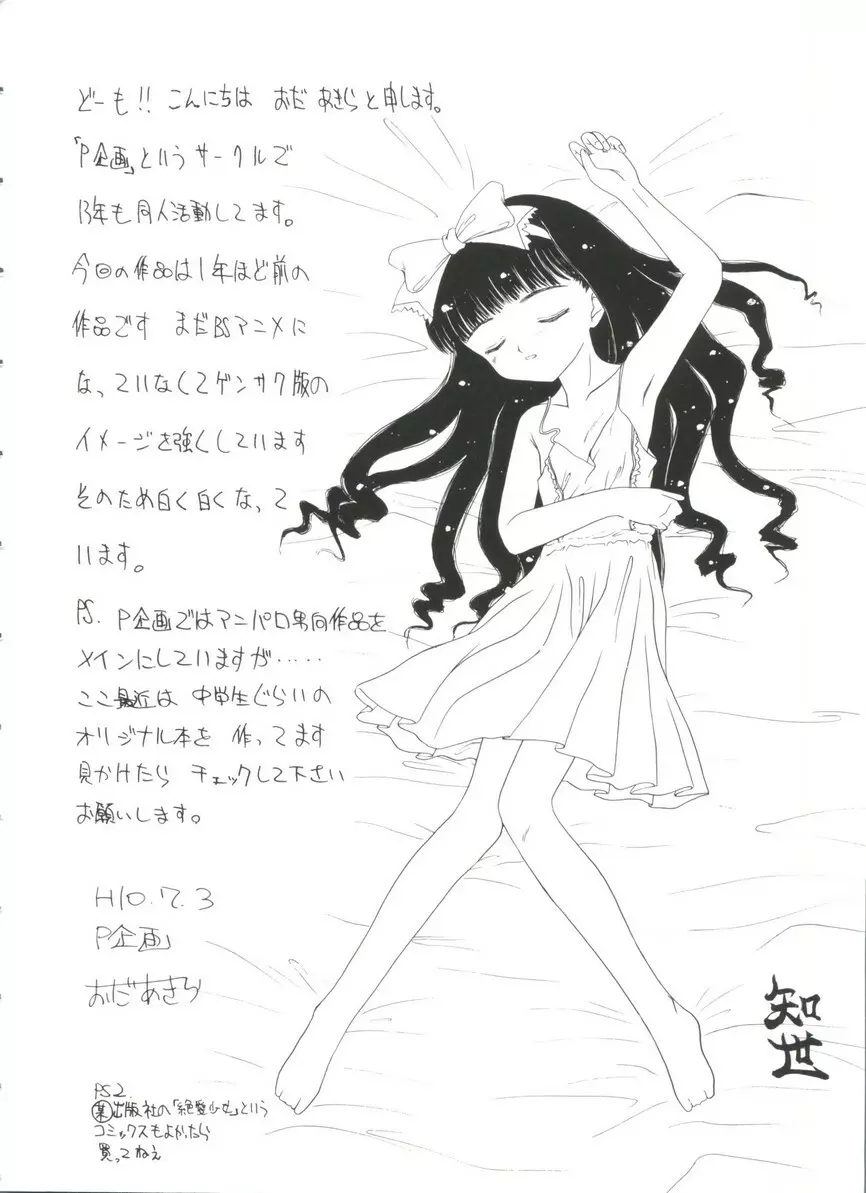 どーも!! こんにちは おだ あきらと申します。
「P企画」というサークルで
13年も同人活動してます。
今回の作品は1年ほど前の
作品です まだBSアニメに
なっていなくてゲンサク版の
イメージを強くしています
そのため白く白くなって
います。
PS. P企画ではアニパロ男向作品を
メインにしていますが……
ここ最近は 中学生ぐらいの
オリジナル本を 作ってます
見かけたら チェックして下さい
お願いします。
H10.7.3
P企画
おだあきら
PS2.
㊑出版社の「絶愛少女」という
コミックスもよかったら
買ってねぇ
知世